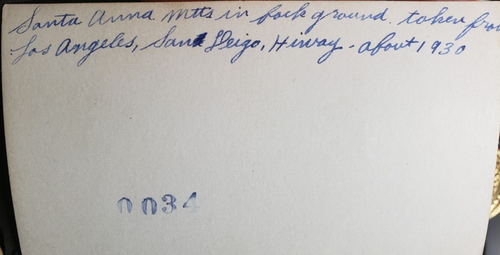 Santa Anna Mtts in back ground. taken from
Los Angeles, San Deigo, Hiway - about 1930
0034